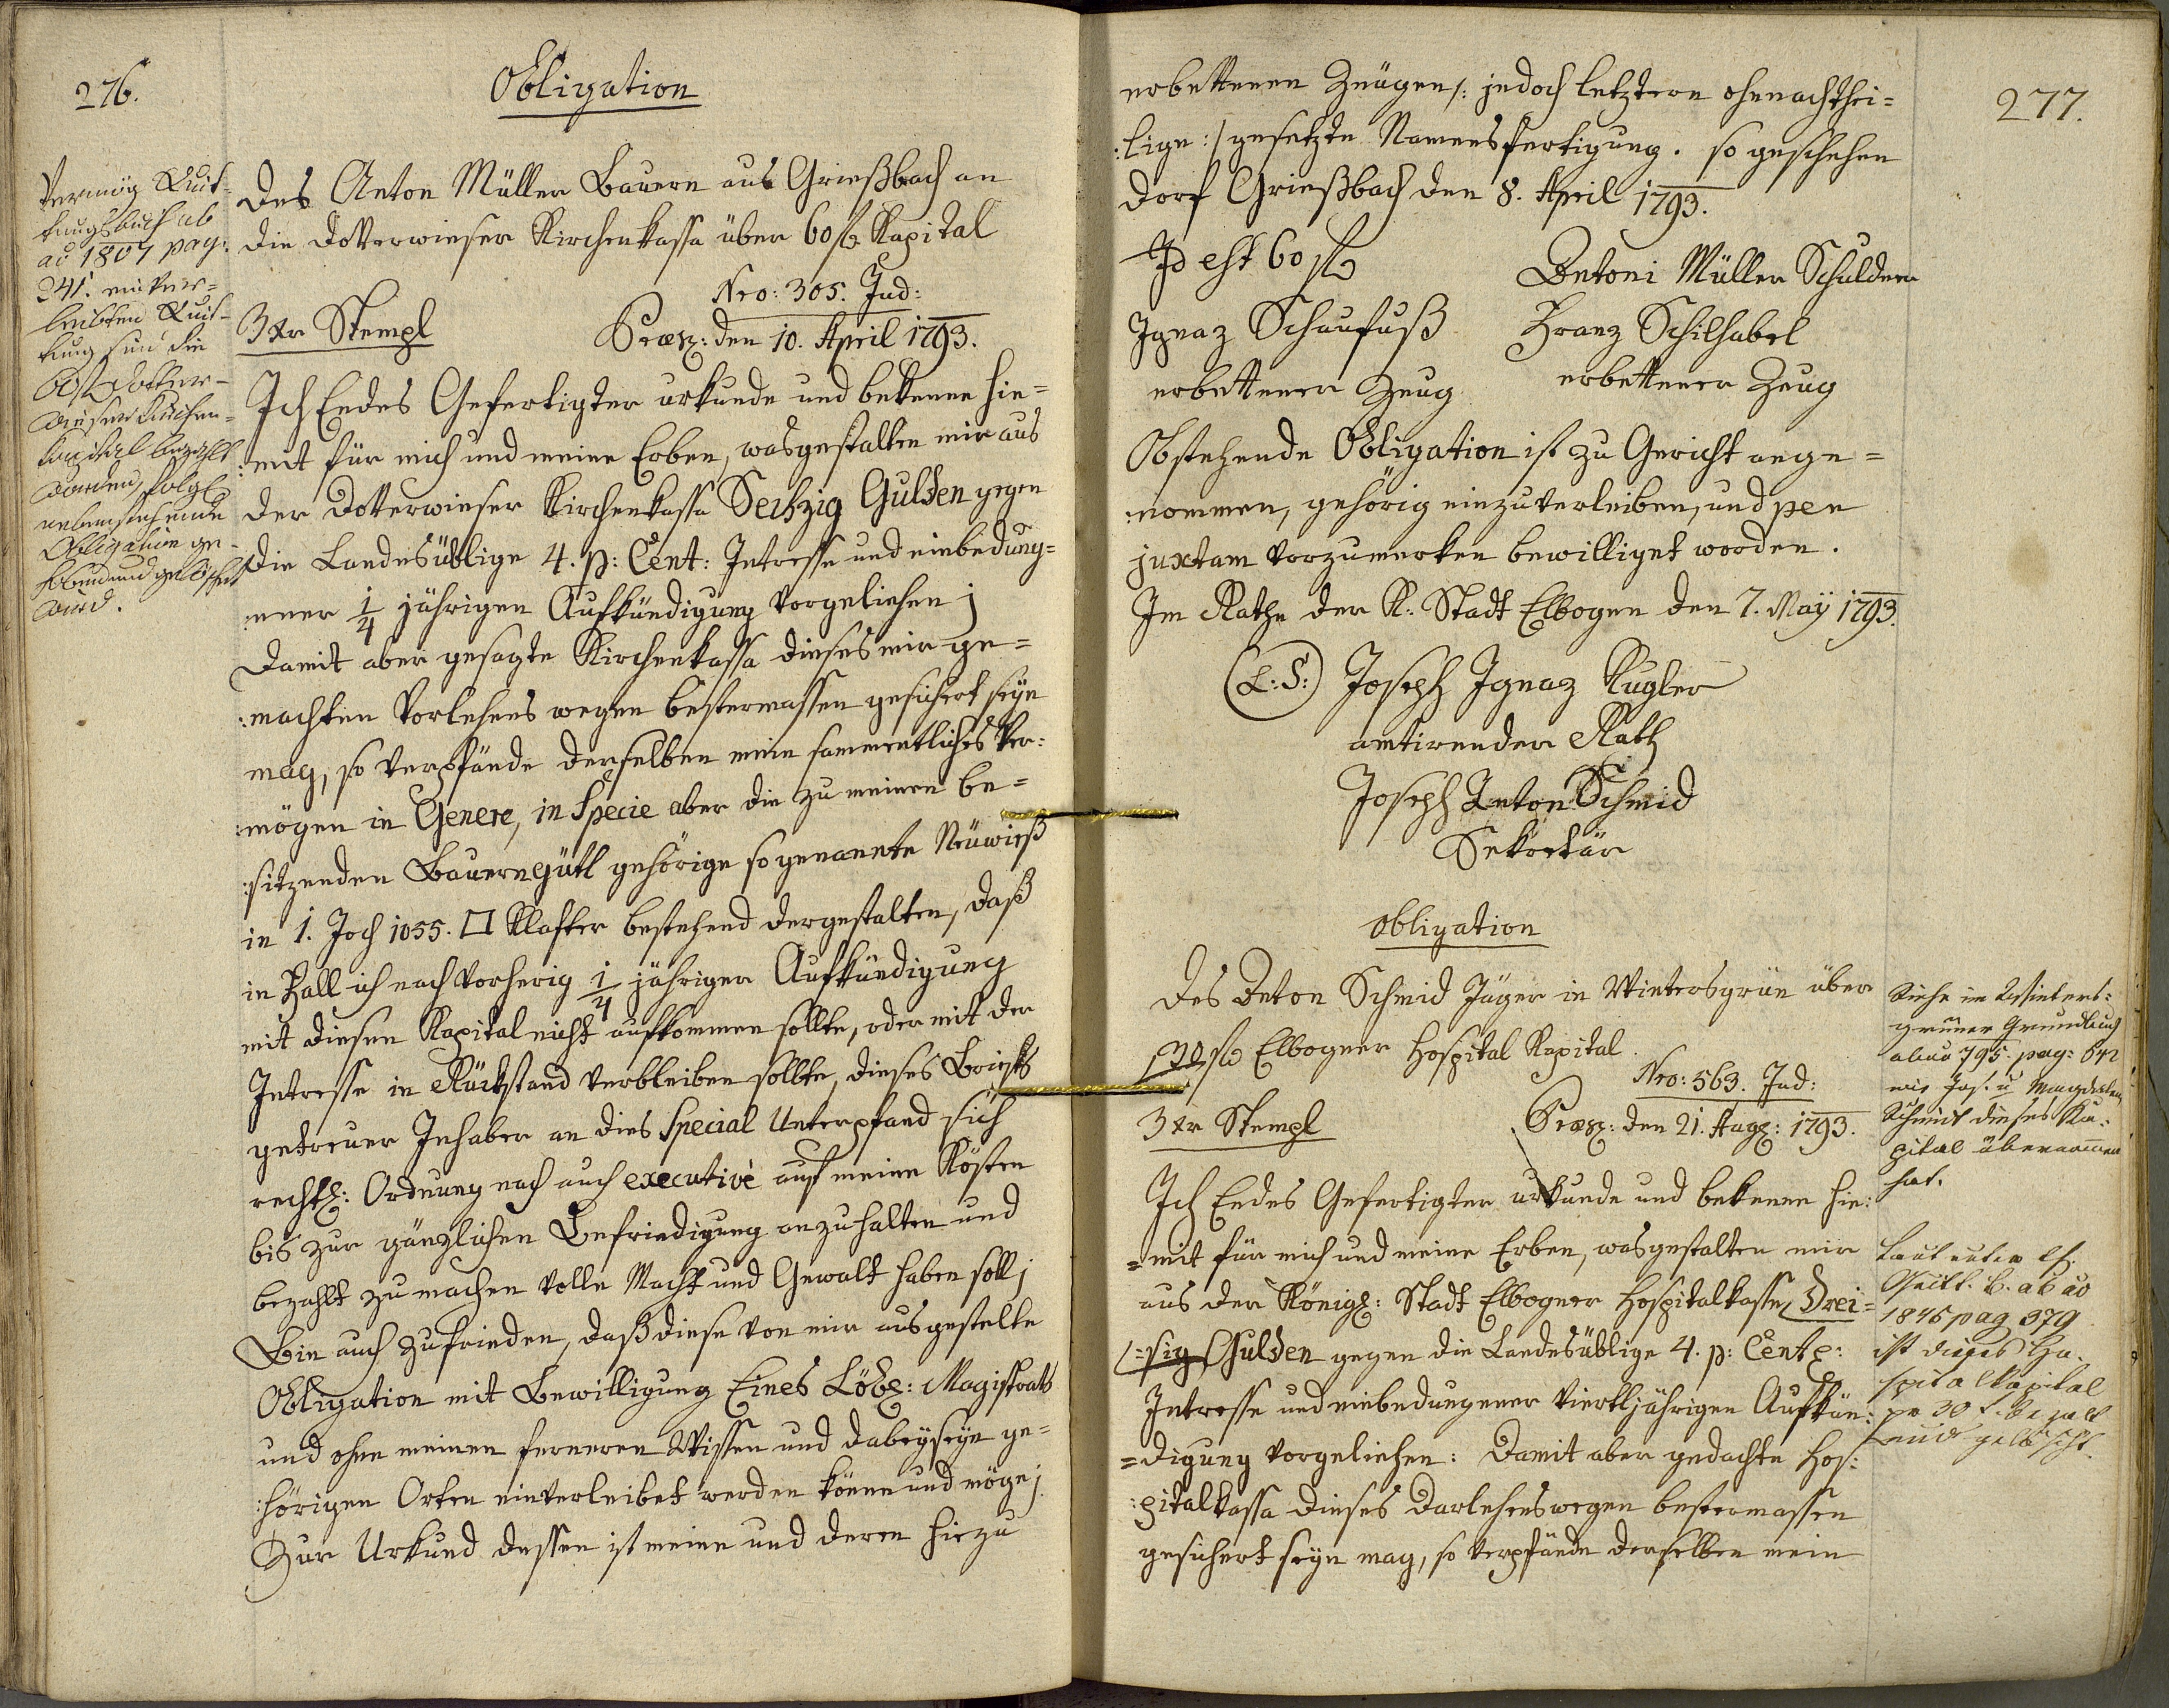 276.
Obligation
Des Anton Müller Bauern aus Grießbach an
die Dotterwieser Kirchenkassa über 60 fl Kapital
Nro: 305. Jud:
3 xr Stempl
Præs: den 10. April 1793.
Ich Endes Gefertigter urkunde und bekenne hie=
:mit für mich und meine Erben, wasgestalten mir aus
der Dotterwieser Kirchenkassa Sechzig Gulden gegen
die Landesüblige 4. p: Cent: Intresse und einbedung=
:ener 1/4 jährigen Aufkündigung vorgeliehen;
Damit aber gesagte Kirchenkassa dieses mir ge=
:machten Vorlehens wegen bestermassen gesichert seyn
mag, so verpfände derselben mein sammentliches Ver:
:mögen in Genere, in Specie aber die zu meinen be=
:sitzenden Bauerngütl gehörige so genannte Neuwieß
in 1. Joch 1055. □ Klafter bestehend dergestalten, daß
in Fall ich nach vorherig 1/4 jähriger Aufkündigung
mit diesen Kapital nicht aufkommen sollte, oder mit der
Intresse in Rückstand verbleiben sollte, dieses Briefs
getreuer Inhaber an dies Special Unterpfand sich
rechtl: Ordnung nach auch executivè auf meine Kösten
bis zur gänzlichen Befriedigung anzuhalten und
bezahlt zu machen volle Macht und Gewalt haben soll;
Bin auch zufrieden, daß diese von mir ausgestelte
Obligation mit Bewilligung Eines Löbl: Magistrats
und ohne meinen ferneren Wissen und dabeyseyn ge=
:hörigen Orten einverleibet werden könne und möge;
Zur Urkund dessen ist meine und deren hiezu
Vermög Quit-
tungsbuch ab
ao 1807 pag:
241. einver=
leibten Quit-
tung sind die
60 fl Dotter-
wieser Kirchen=
kapital bezahlt
worden, folgl
nebenstehende
Obligation ge-
hoben und gelöscht
wird.
277.
erbettenen Zeugen /: jedoch letztern ohnnachthei=
:lige :/ gesetzte Namensfertigung. so geschehen
Dorf Grießbach den 8. April 1793.
Id est 60 fl
Antoni Müller Schuldner
Ignaz Schaufuß
Franz Schilhabel
erbettener Zeug
erbettener Zeug
Obstehende Obligation ist zu Gericht ange=
:nommen, gehörig einzuverleiben, und pen
juxtam vorzumerken bewilliget worden.
Im Rathe der K. Stadt Elbogen den 7. Maÿ 1793.
(L: S:) Joseph Ignaz Kugler
amtirender Rath
Joseph Anton Schmid
Sekretär
Obligation
Des Anton Schmid Jäger in Wintersgrün über
30 fl Elbogner Hospital Kapital.
Nro: 563. Jud:
3 xr Stempl
Præs: den 21. Aug: 1793.
Ich Endes Gefertigter urkunde und bekenne hie:
=mit für mich und meine Erben, wasgestalten mir
aus der Königl: Stadt Elbogner Hospitalkasse Drei=
=sig Gulden gegen die Landesüblige 4. p: Cent:
Intresse und einbedungener viertljährigen Aufkün:
=digung vorgeliehen: Damit aber gedachte Hos:
:pitalkassa dieses Darlehens wegen bestermassen
gesichert seyn mag, so verpfände derselben mein
Siehe im Winters:
grüner Grundbuch
abao 795. pag: 642
wie Jos. u Magdalena
Schmit dieses Ka:
pital übernommen
hat.
Laut
Quitt. B. ab ao
1846 pag 379
ist dieses Ho-
spitalkapital
pr 30 f. bezalt
und gelöscht.